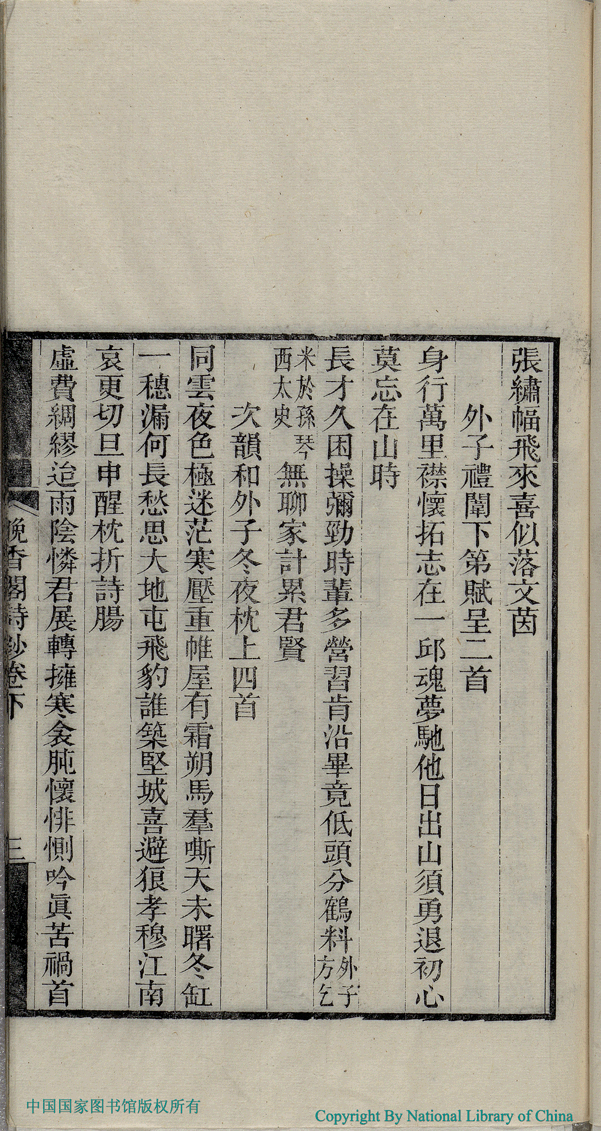 張繡幅飛來喜似落文茵
外子禮闈下第賦呈二首
身行萬里襟懷拓志在一邱魂夢馳他日出山須勇退初心
莫忘在山時
長才久困操彌勁時輩多營習肯沿畢竟低頭分鶴料外子方乞
米於孫琴西太史無聊家計累君賢
次韻和外子冬夜枕上四首
同雲夜色極迷茫寒壓重帷屋有霜朔馬羣嘶天未曙冬缸
一穗漏何長愁思大地屯飛豹誰築堅城喜避狼孝穆江南
哀更切旦申醒枕折詩腸
虛費綢繆迨雨陰憐君展轉擁寒衾肫懷悱惻吟眞苦禍首
晚香閣詩鈔卷下
三
中国国家图书馆版权所有
Copyright By National Library of China